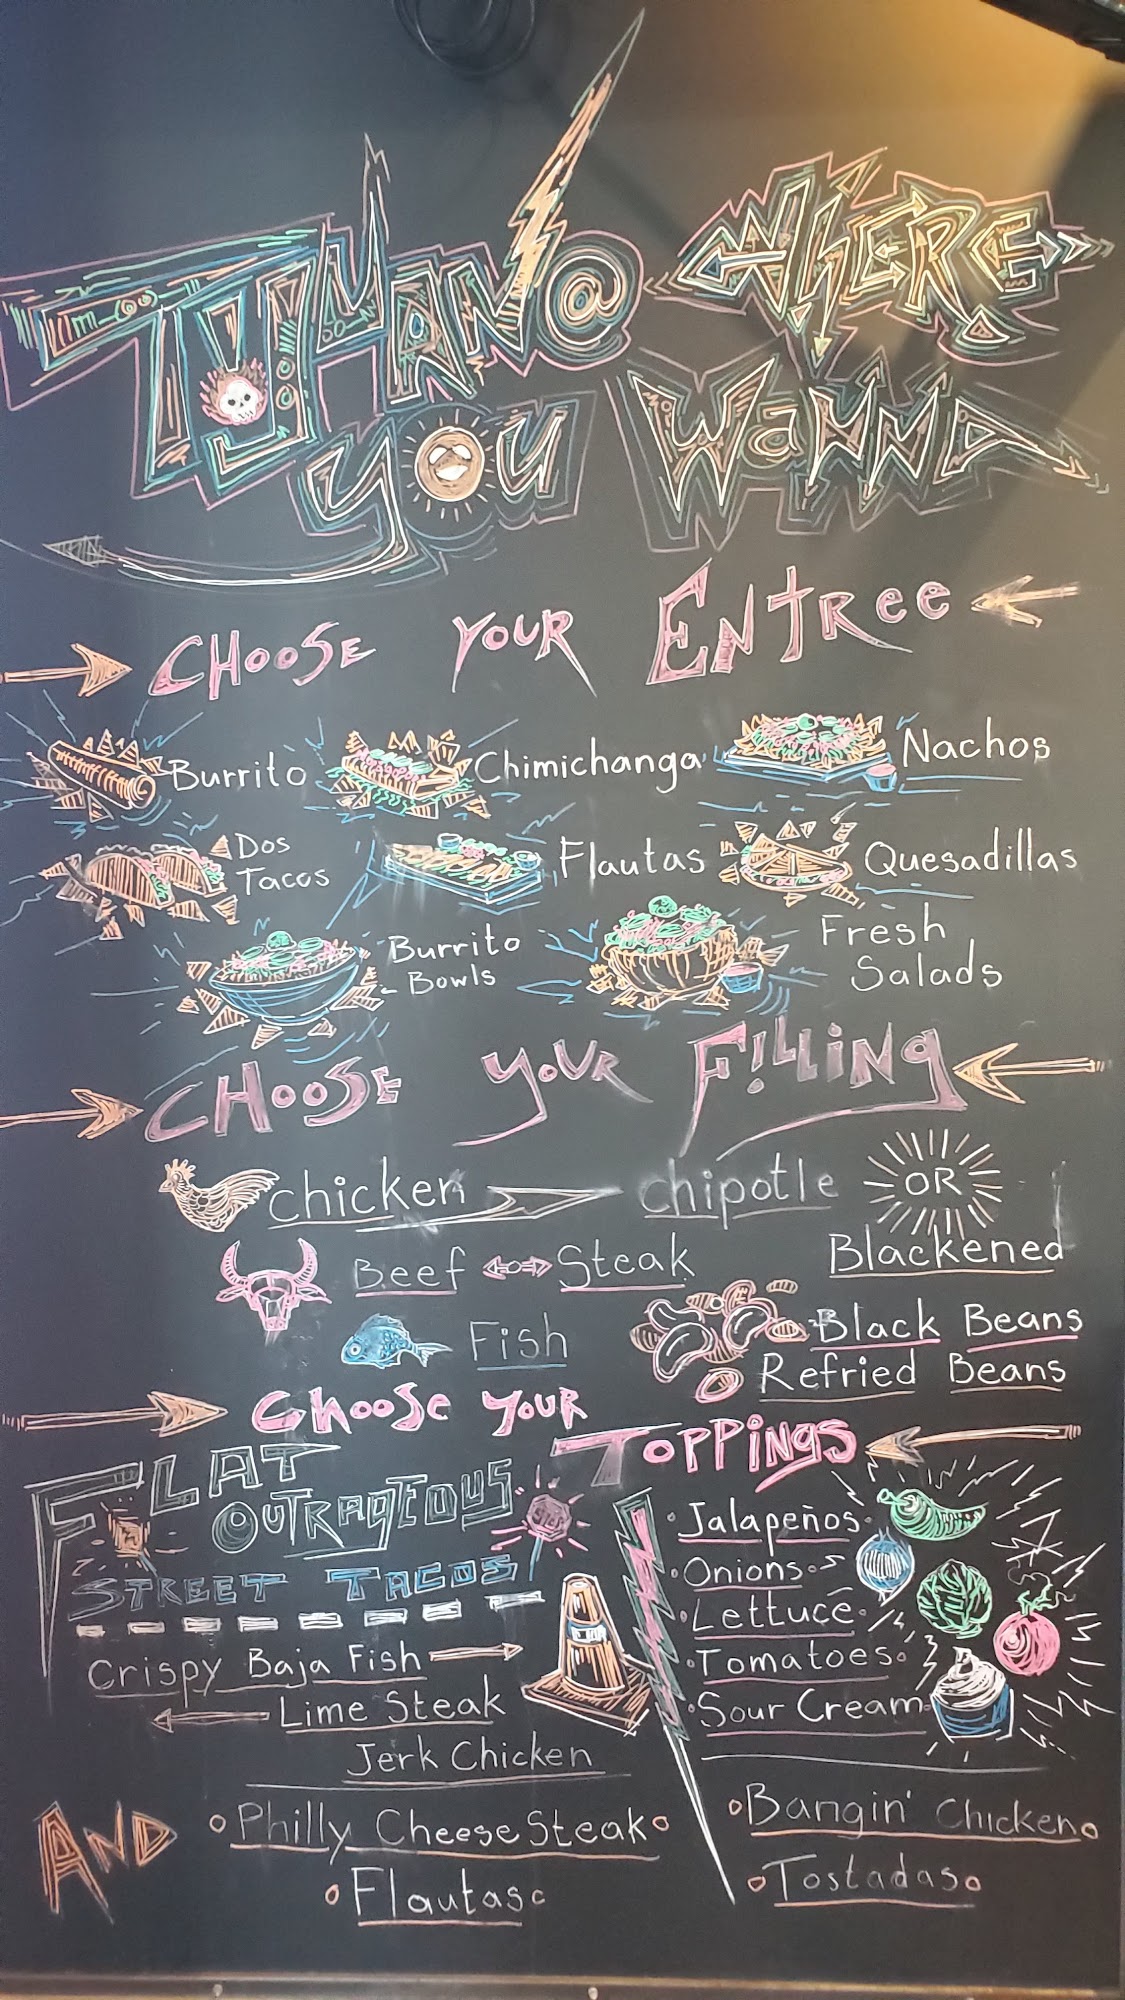 TIJUANA @ WHERE
YOU WANNA
CHOOSE YOUR ENTREE
Burrito
Chimichanga
Nachos
Dos
Tacos
Flautas
Quesadillas
Burrito
Bowls
Fresh
Salads
CHOOSE YOUR F!LLING
Chicken
chipotle
OR
Blackened
Beef
Steak
Fish
Black Beans
Refried Beans
CHOOSE YOUR
TOPPINGS
FLAT
OUTRAGEOUS
STREET TACOS
Crispy Baja Fish
Lime Steak
Jerk Chicken
Jalapeños
Onions
Lettuce
Tomatoes
Sour Cream
AND
Philly Cheese Steak
Flautas
Bangin' Chicken
Tostadas